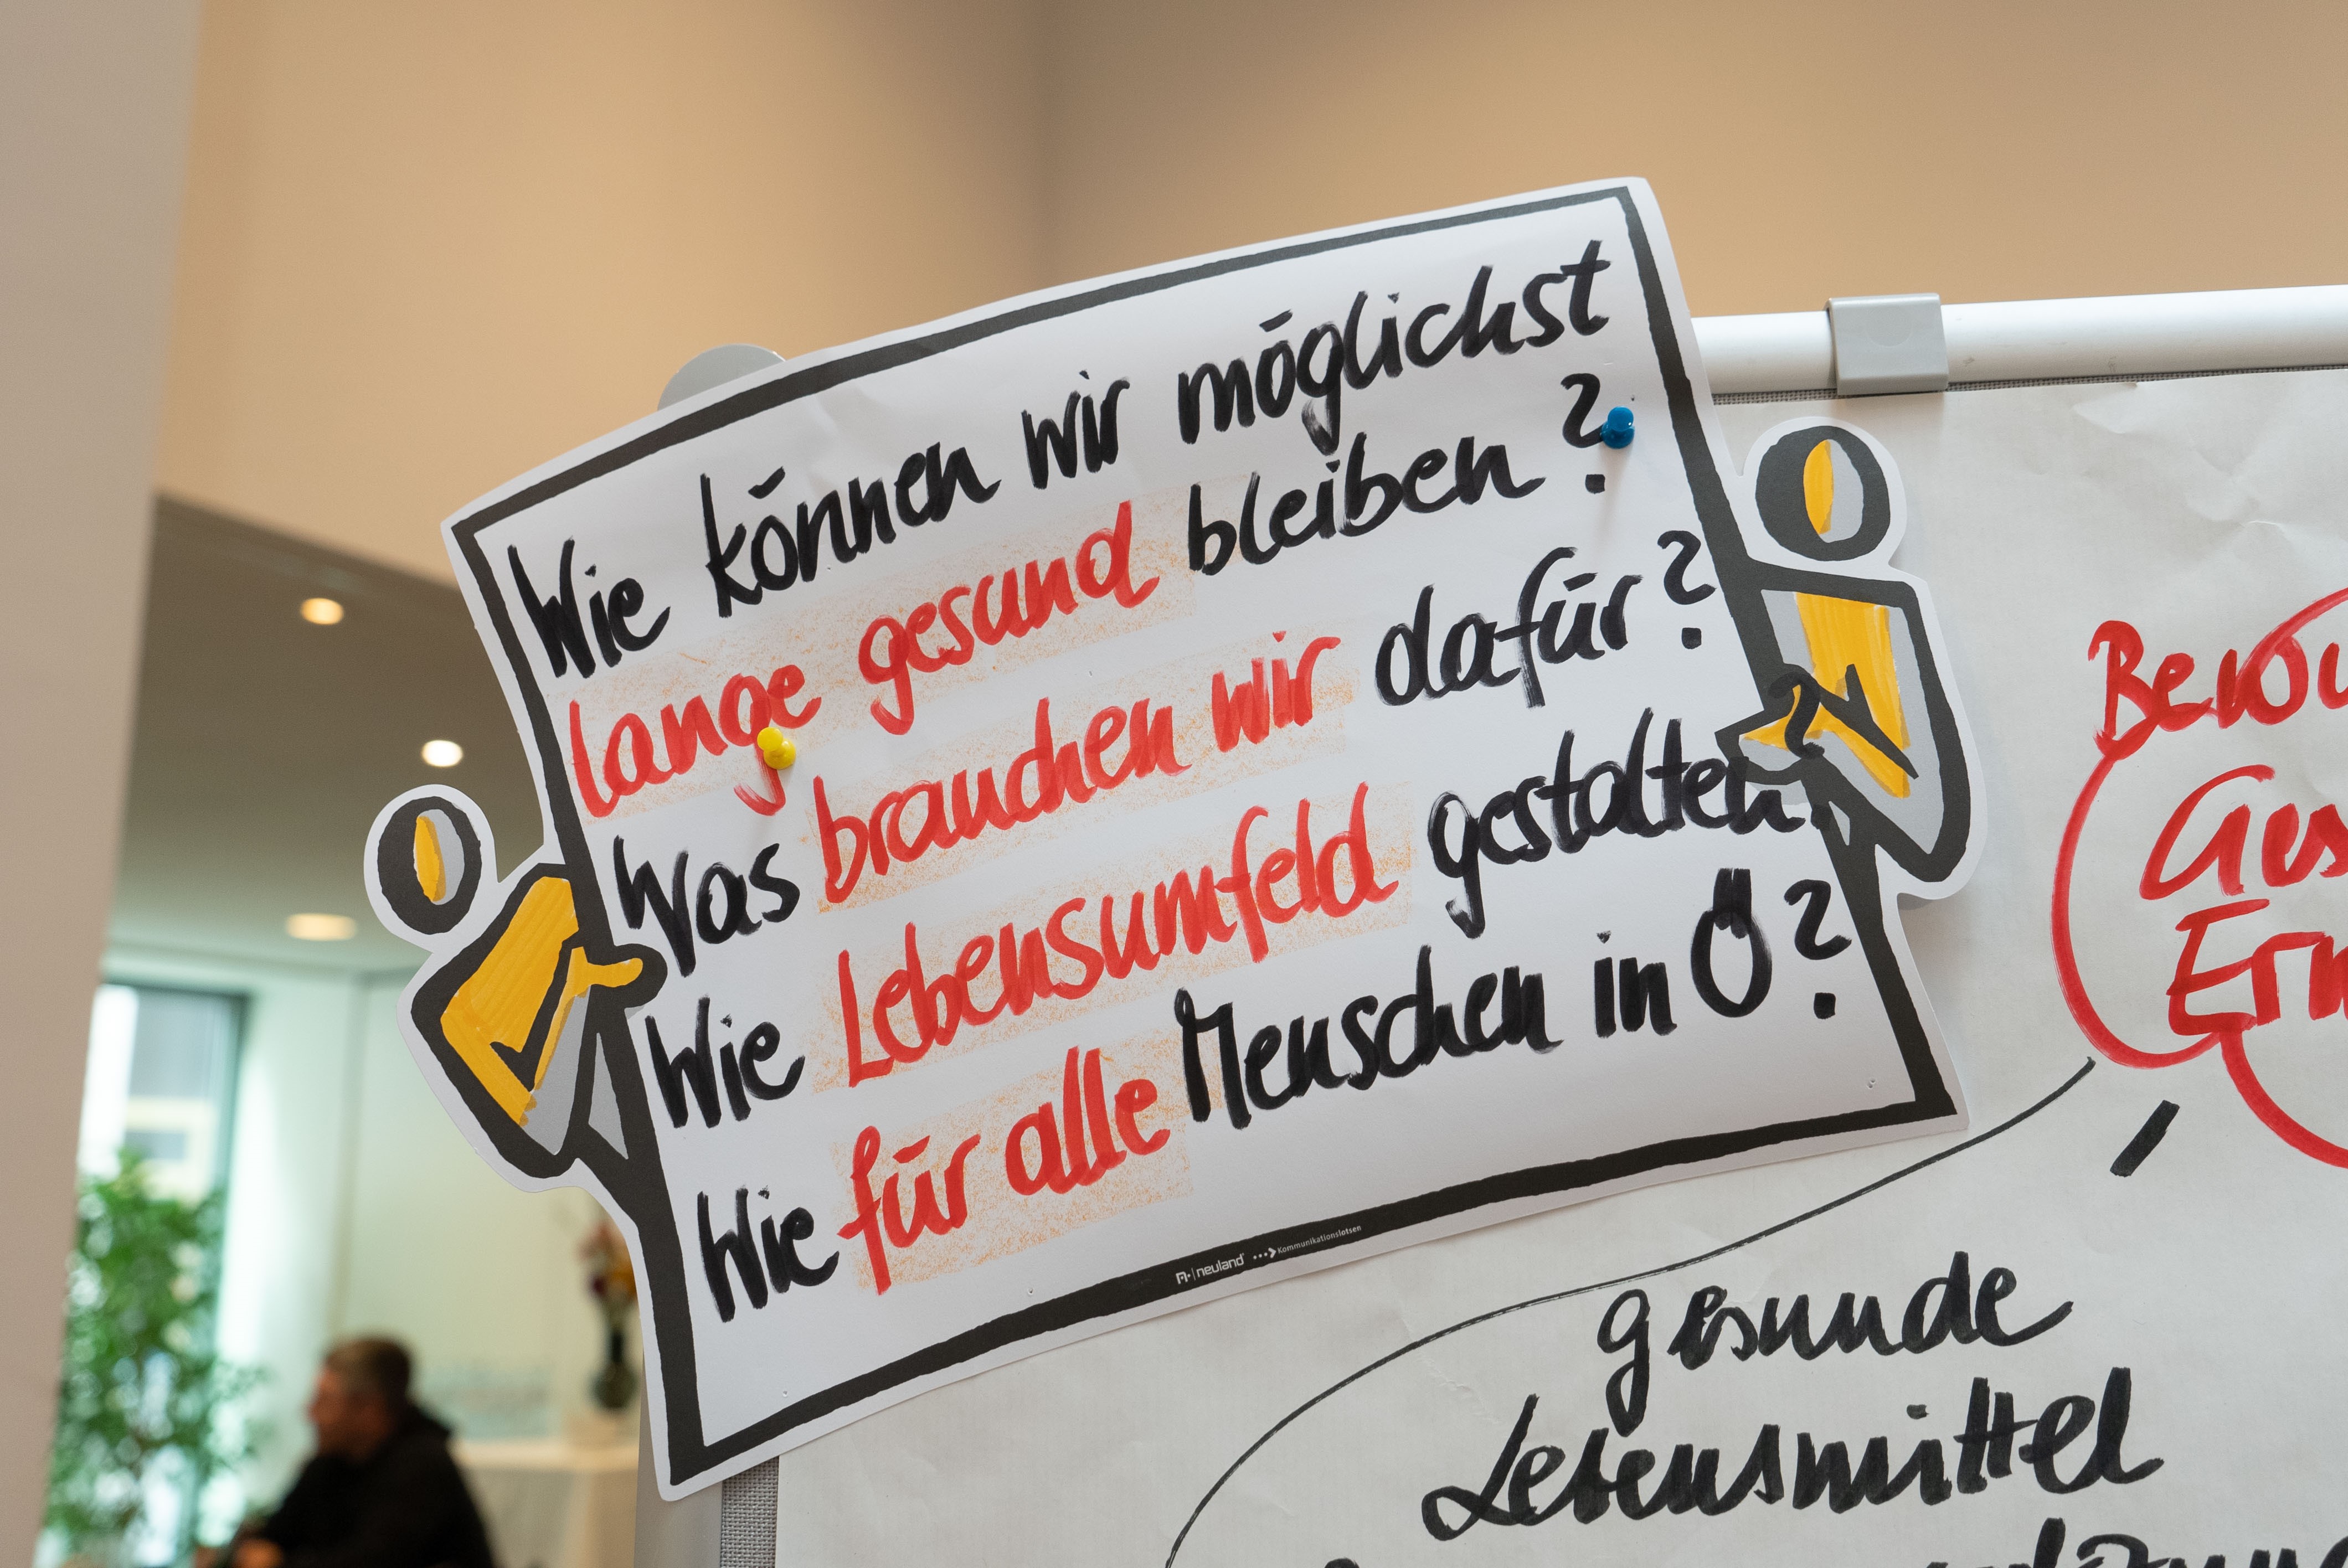 Wie können wir möglichst
lange gesund bleiben?
Was brauchen wir dafür?
Wie Lebensumfeld gestalten?
Wie für alle Menschen in Ö?
neuland Kommunikationslotsen
gesunde
Lebensmittel